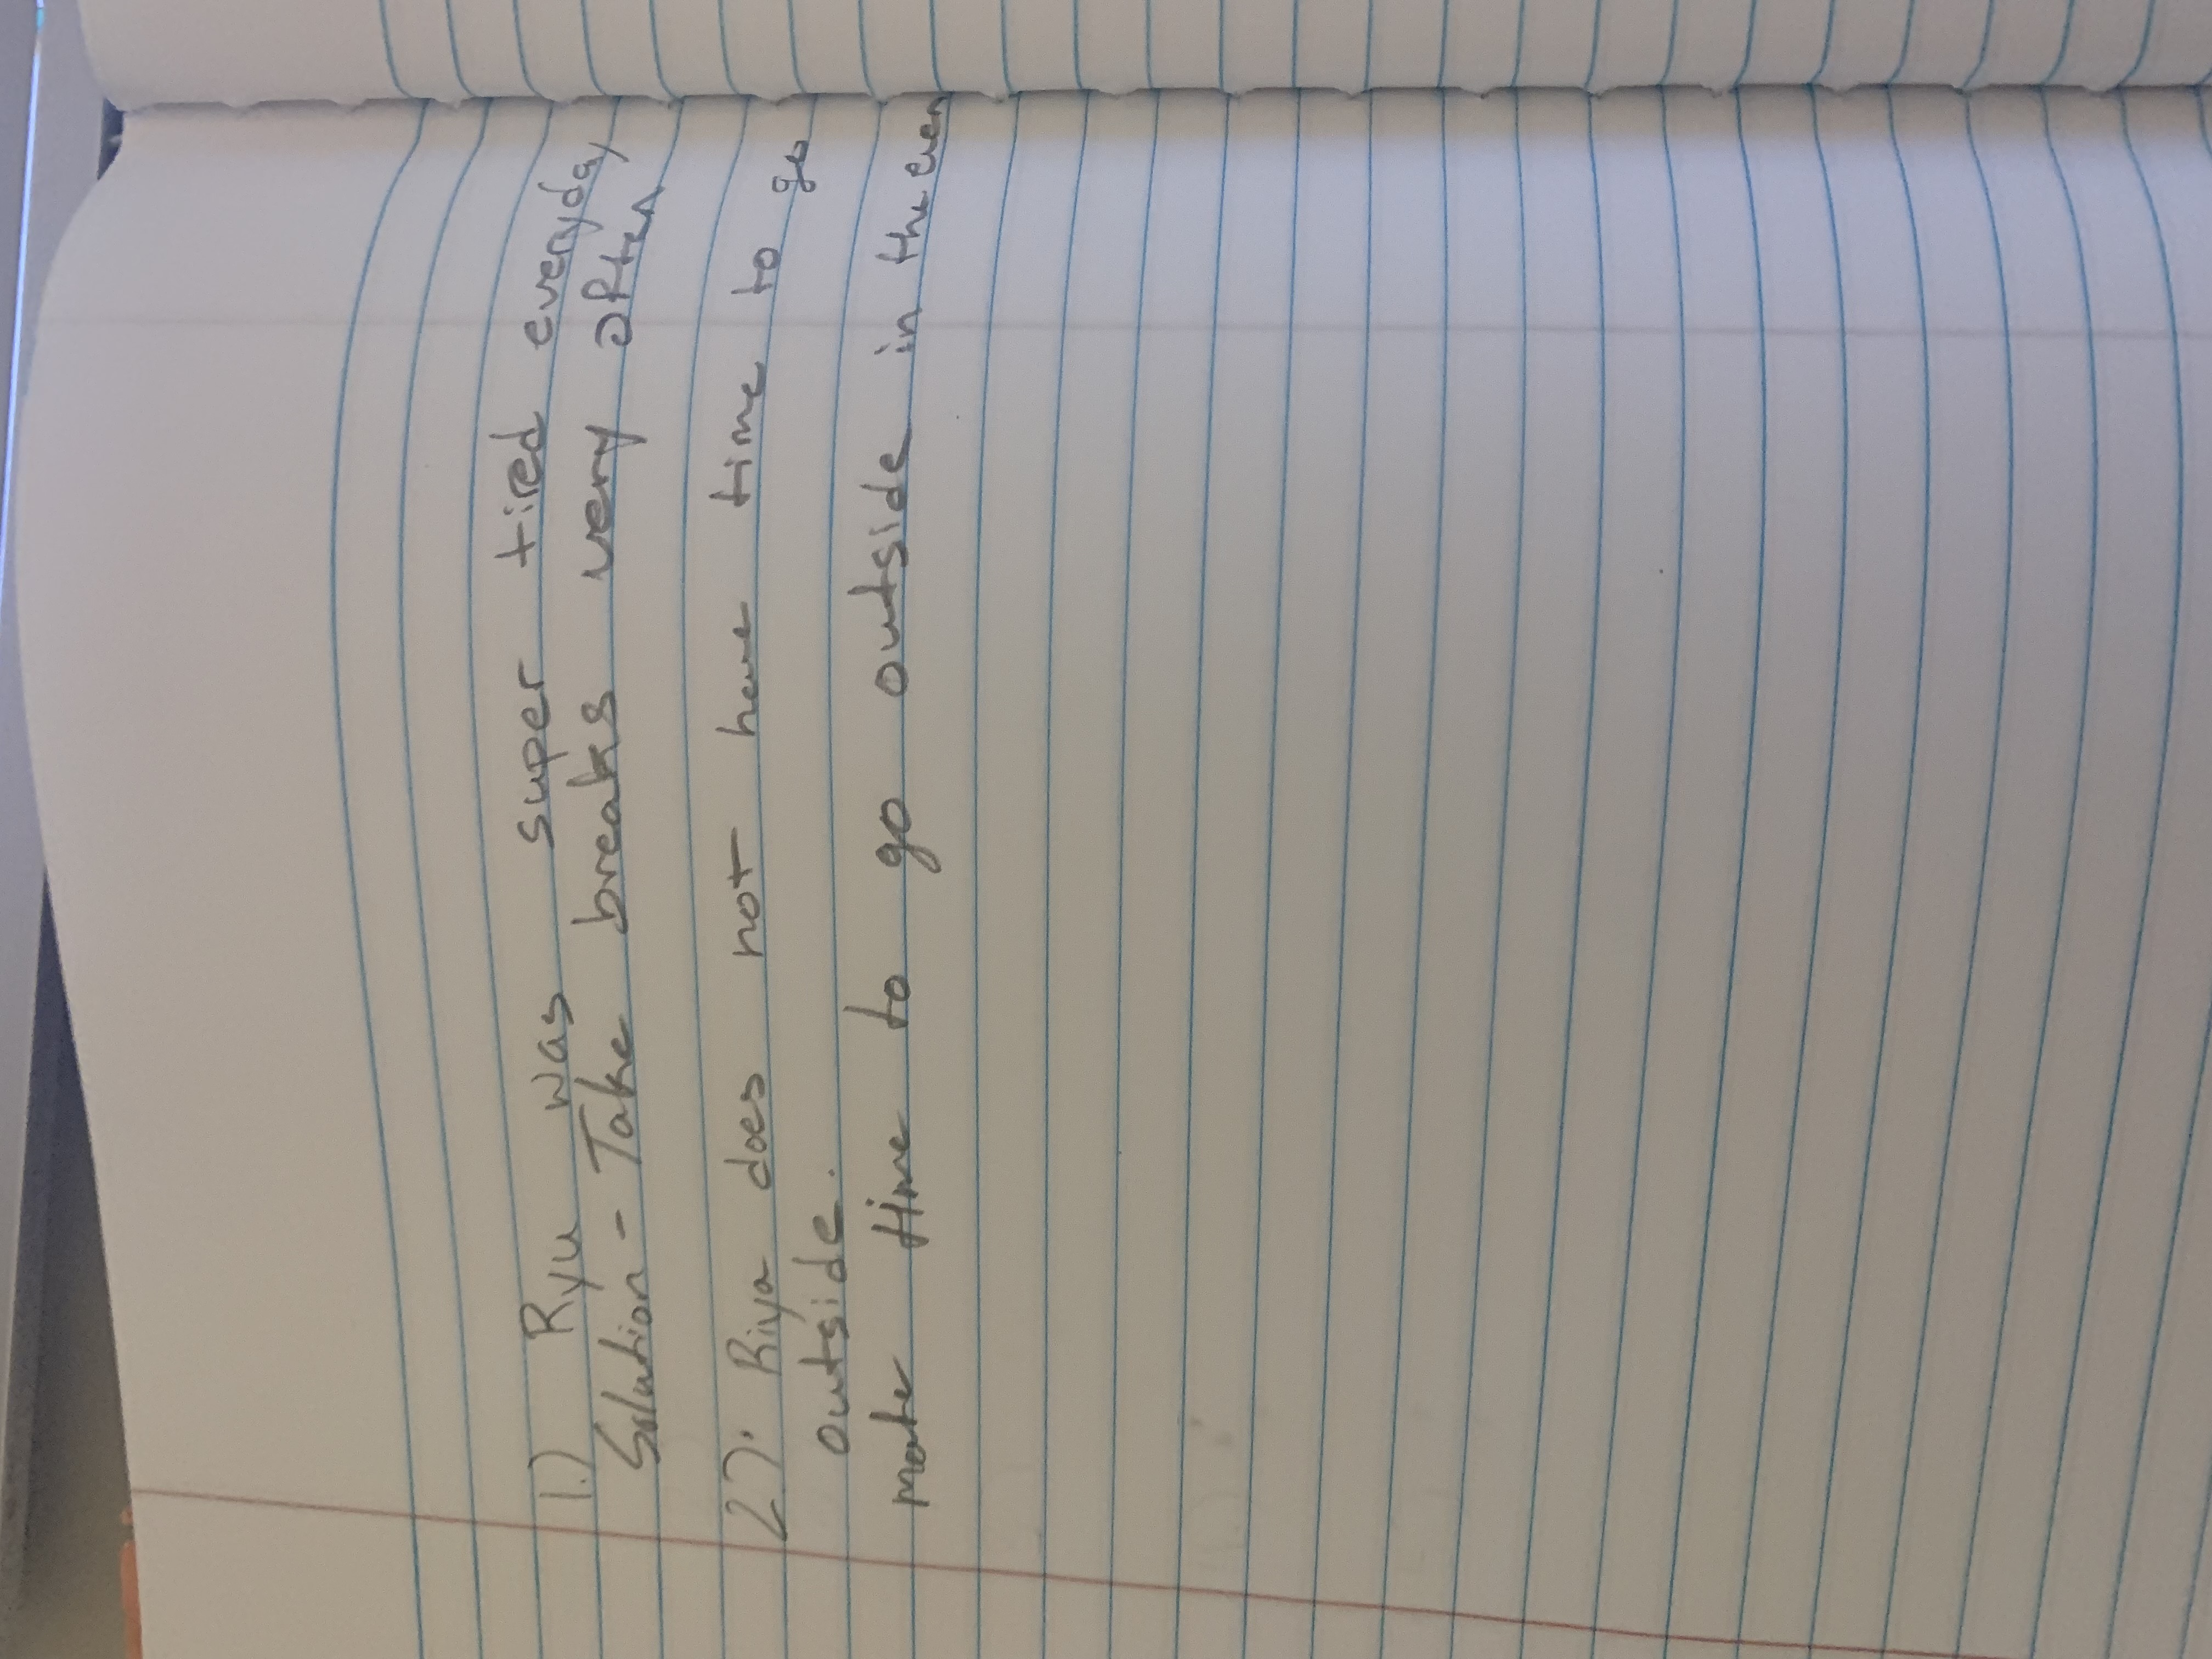 1.) Ryu was super tired everyday
Solution - Take breaks very often
2.). Riya does not have time to go
outside.
make time to go outside in the even